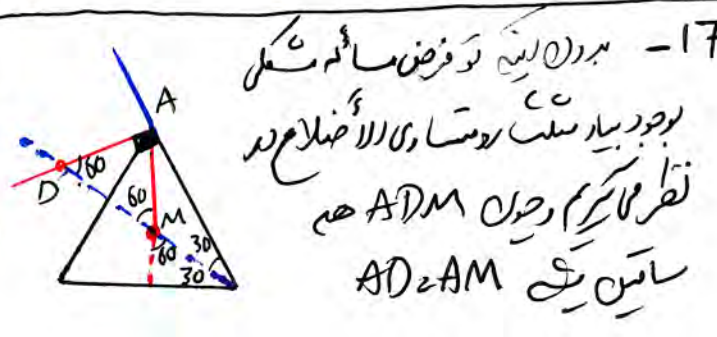 17- بدون اینکه تو فرض مسأله مشکلی
بوجود بیاد مثلث رو متساوی الأضلاع در
نظر می‌گیریم و چون ADM هم
ساقین یشه AD=AM
A
D
60
60
M
60
30
30